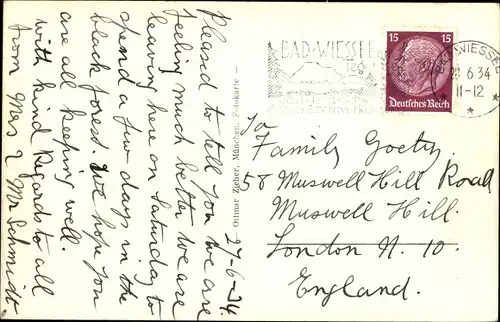 27-6-34.
Pleasd to tell you we are
feeling much better we are
leaving here on Saturday to
spend a few days in the
black forest. We hope you
are all keeping well.
with kind Regards to all
from Mrs & Mr Schmidt
Ottmar Zieher, München. Fotokarte —
BAD-WIESSEE
BAD WIESSEE
6.34
11-12
15 15
Deutsches Reich
To
Family Goetz.
58 Muswell Hill Road
Muswell Hill.
London N. 10.
England.